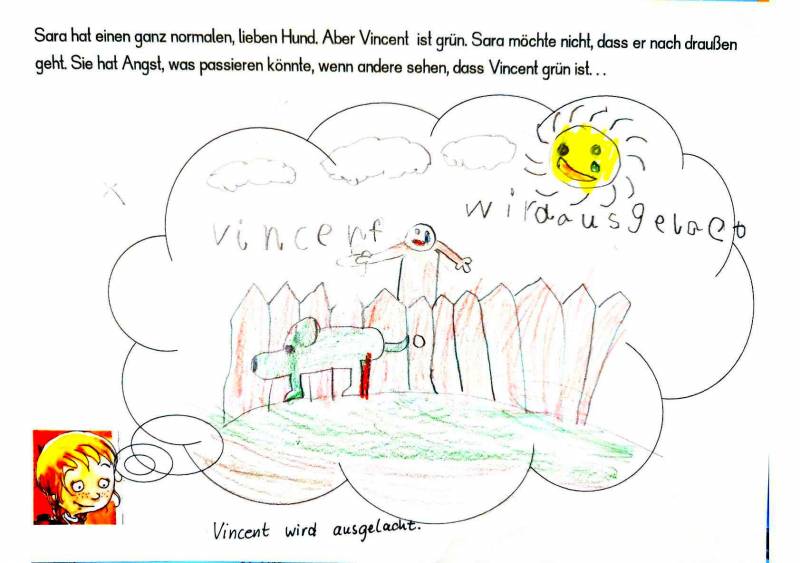 Sara hat einen ganz normalen, lieben Hund. Aber Vincent ist grün. Sara möchte nicht, dass er nach draußen
geht. Sie hat Angst, was passieren könnte, wenn andere sehen, dass Vincent grün ist...
vincent wird ausgelact
Vincent wird ausgelacht.